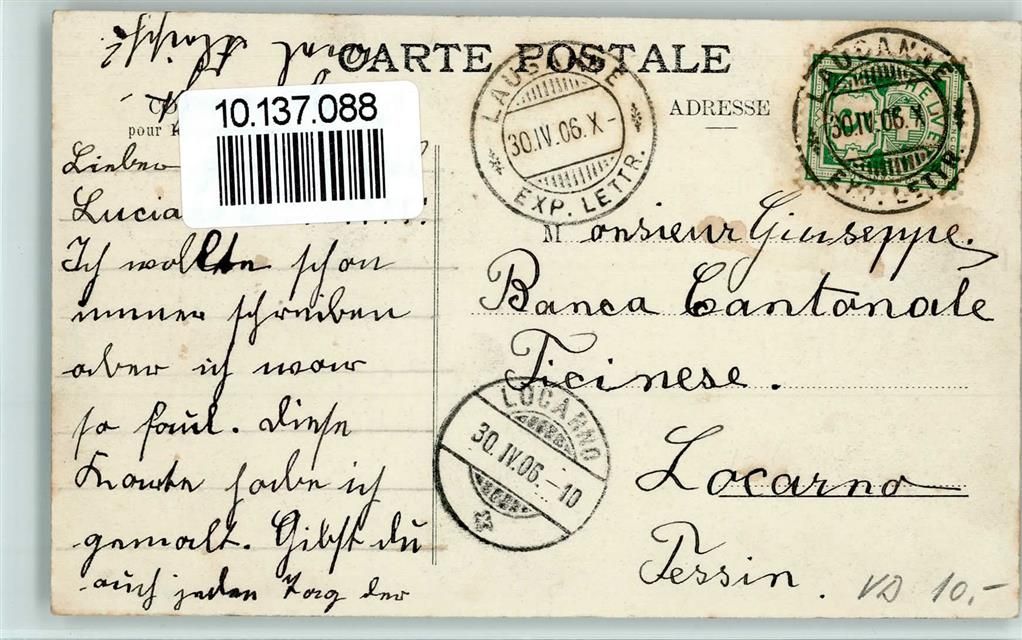 CARTE POSTALE
10.137.088
pour
ADRESSE
LAUSANNE
30.IV.06.X-
EXP. LETTR.
LAUSANNE
30.IV.06.X
EXP. LETTR.
HELVE
Lieber
Lucia
Ich wollte schon
immer schreiben
aber ich war
so faul. Diese
Karte habe ich
gemalt. Gibst du
auch jeden Tag der
Monsieur Giuseppe.
Banca Cantonale
Ticinese.
Locarno
Tessin.
LOCARNO
30.IV.06.-10
VD 10.-